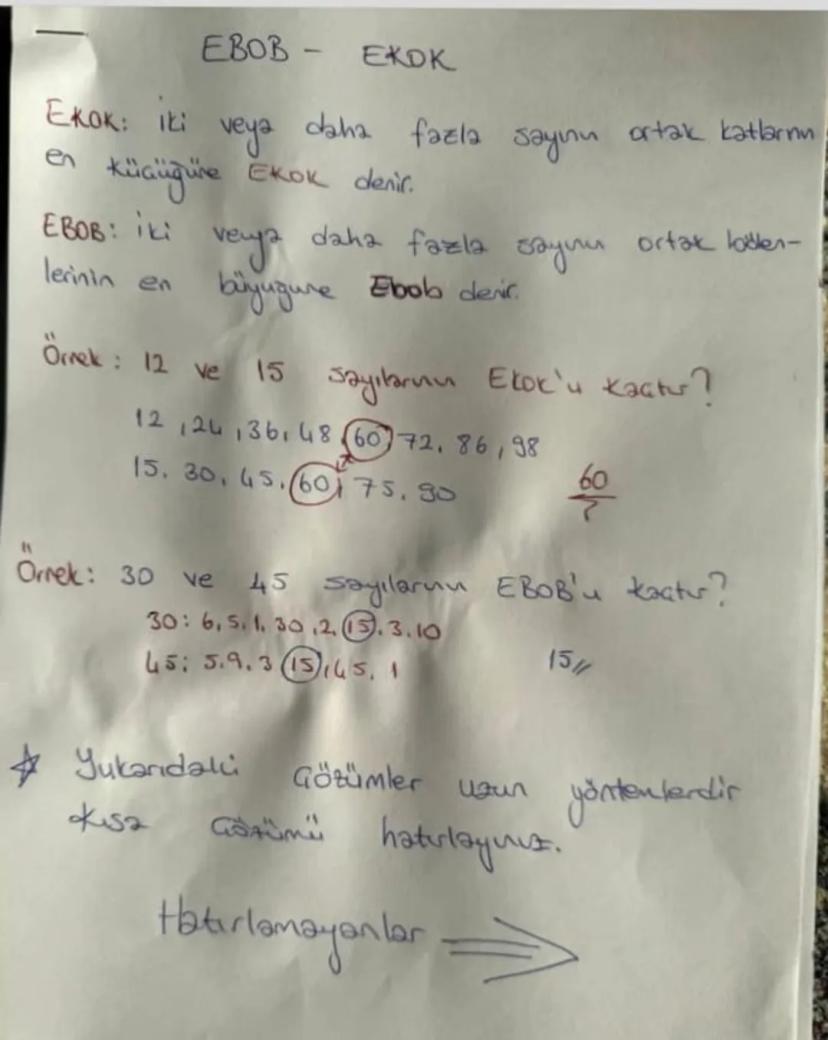 EBOB - EKOK
EKOK: iki veya daha fazla sayının ortak katlarının
en küçüğüne EKOK denir.
EBOB: iki veya daha fazla sayının ortak bölen-
lerinin en büyüğüne Ebob denir.
Örnek: 12 ve 15 sayılarının Ekok'u kaçtır?
12, 24, 36, 48, 60, 72, 86, 98
15. 30, 45. 60, 75. 90
60
Örnek: 30 ve 45 sayılarının EBOB'u kaçtır?
30: 6, 5, 1, 30, 2, 15, 3, 10
45: 5. 9. 3 15, 45, 1
15
Yukarıdaki çözümler uzun yöntemlerdir
Kısa çözümü hatırlayınız.
Hatırlamayanlar